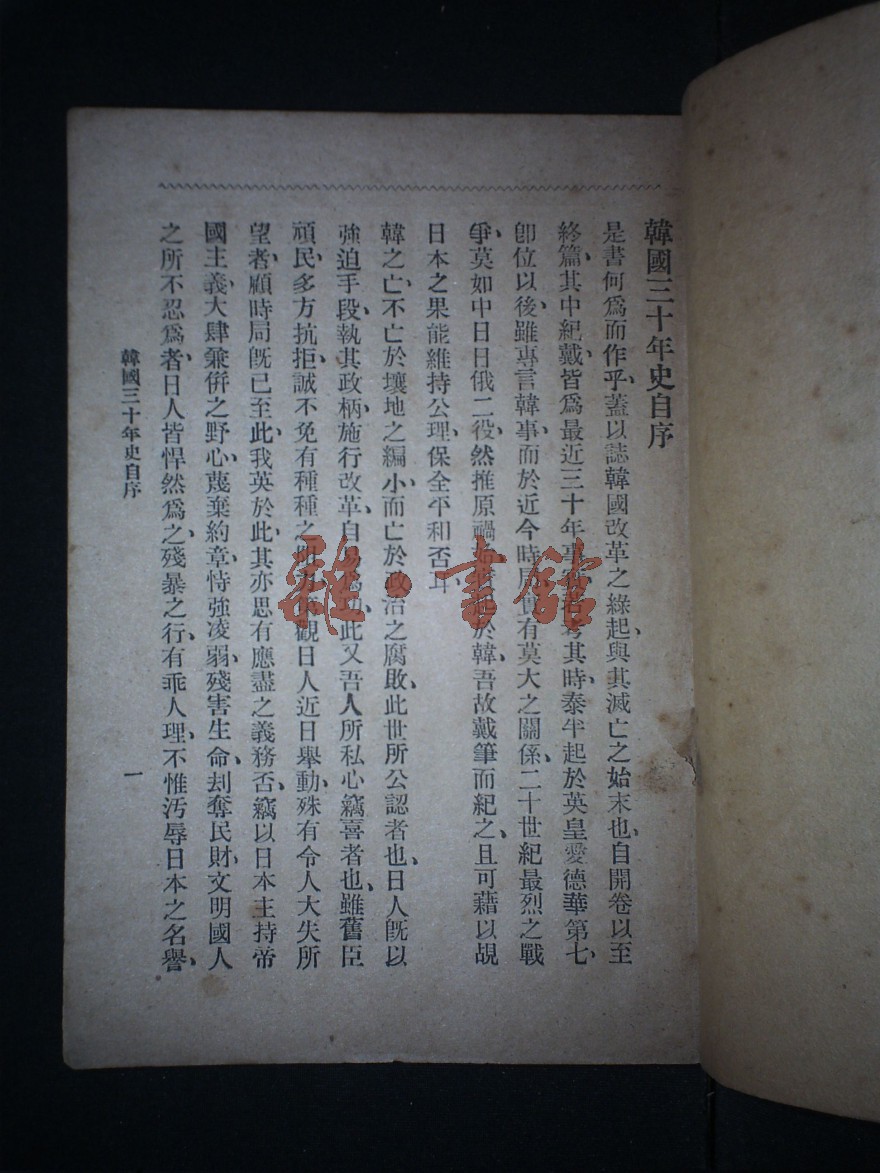 韓國三十年史自序
是書何爲而作乎、蓋以誌韓國改革之緣起、與其滅亡之始末也、自開卷以至
終篇、其中紀戴皆爲最近三十年事、考其時、泰半起於英皇愛德華第七、
卽位以後、雖專言韓事、而於近今時局、實有莫大之關係、二十世紀最烈之戰
爭、莫如中日日俄二役、然推原禍於韓、吾故戴筆而紀之、且可藉以覘
日本之果能維持公理、保全平和否耳
韓之亡、不亡於壤地之編小、而亡於政治之腐敗、此世所公認者也、日人旣以
強迫手段、執其政柄、施行改革、自易爲功、此又吾人所私心竊喜者也、雖舊臣
頑民、多方抗拒、誠不免有種種之觀日人近日舉動、殊有令人大失所
望者、顧時局旣已至此、我英於此、其亦思有應盡之義務否、竊以日本主持帝
國主義、大肆兼併之野心、蔑棄約章、恃強凌弱、殘害生命、刦奪民財、文明國人
之所不忍爲者、日人皆悍然爲之、殘暴之行、有乖人理、不惟汚辱日本之名譽、
韓國三十年史自序
一
雜·書館